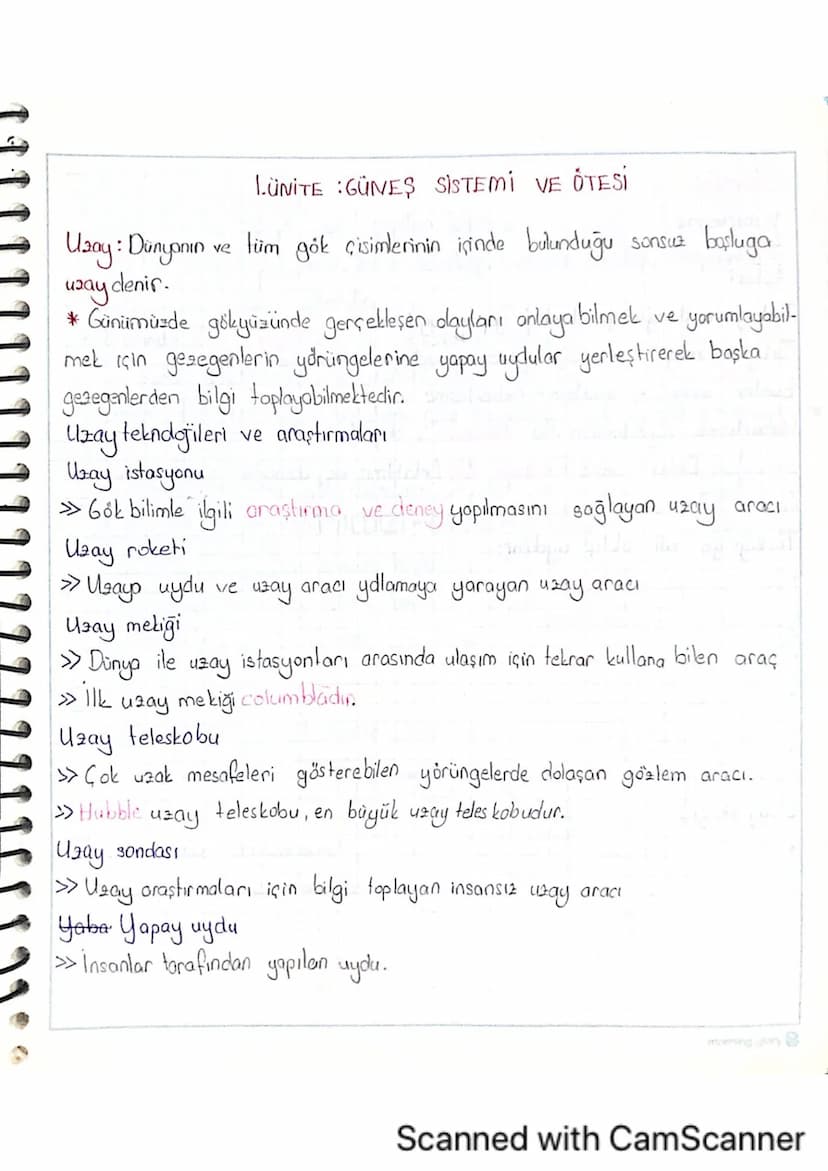 1.ÜNİTE : GÜNEŞ SİSTEMİ VE ÖTESİ
Uzay: Dünyanın ve tüm gök cisimlerinin içinde bulunduğu sonsuz boşluga
uzay denir.
* Günümüzde gökyüzünde gerçekleşen olayları anlaya bilmek ve yorumlayabil-
mek için gezegenlerin yörüngelerine yapay uydular yerleştirerek başka
gezegenlerden bilgi toplayabilmektedir.
Uzay teknolojileri ve araştırmaları
Uzay istasyonu
>> Gök bilimle ilgili araştırma ve deney yapılmasını sağlayan uzay aracı
Uzay roketi
>> Uzaya uydu ve uzay aracı yollamaya yarayan uzay aracı
Uzay mekiği
>> Dünya ile uzay istasyonları arasında ulaşım için tekrar kullana bilen araç
>> İlk uzay mekiği columbiadır.
Uzay teleskobu
>> Çok uzak mesafeleri gösterebilen yörüngelerde dolaşan gözlem aracı.
>> Hubble uzay teleskobu, en büyük uzay teleskobudur.
Uzay sondası
>> Uzay araştırmaları için bilgi toplayan insansız uzay aracı
Yaba Yapay uydu
>> İnsanlar tarafından yapılan uydu.
Scanned with CamScanner